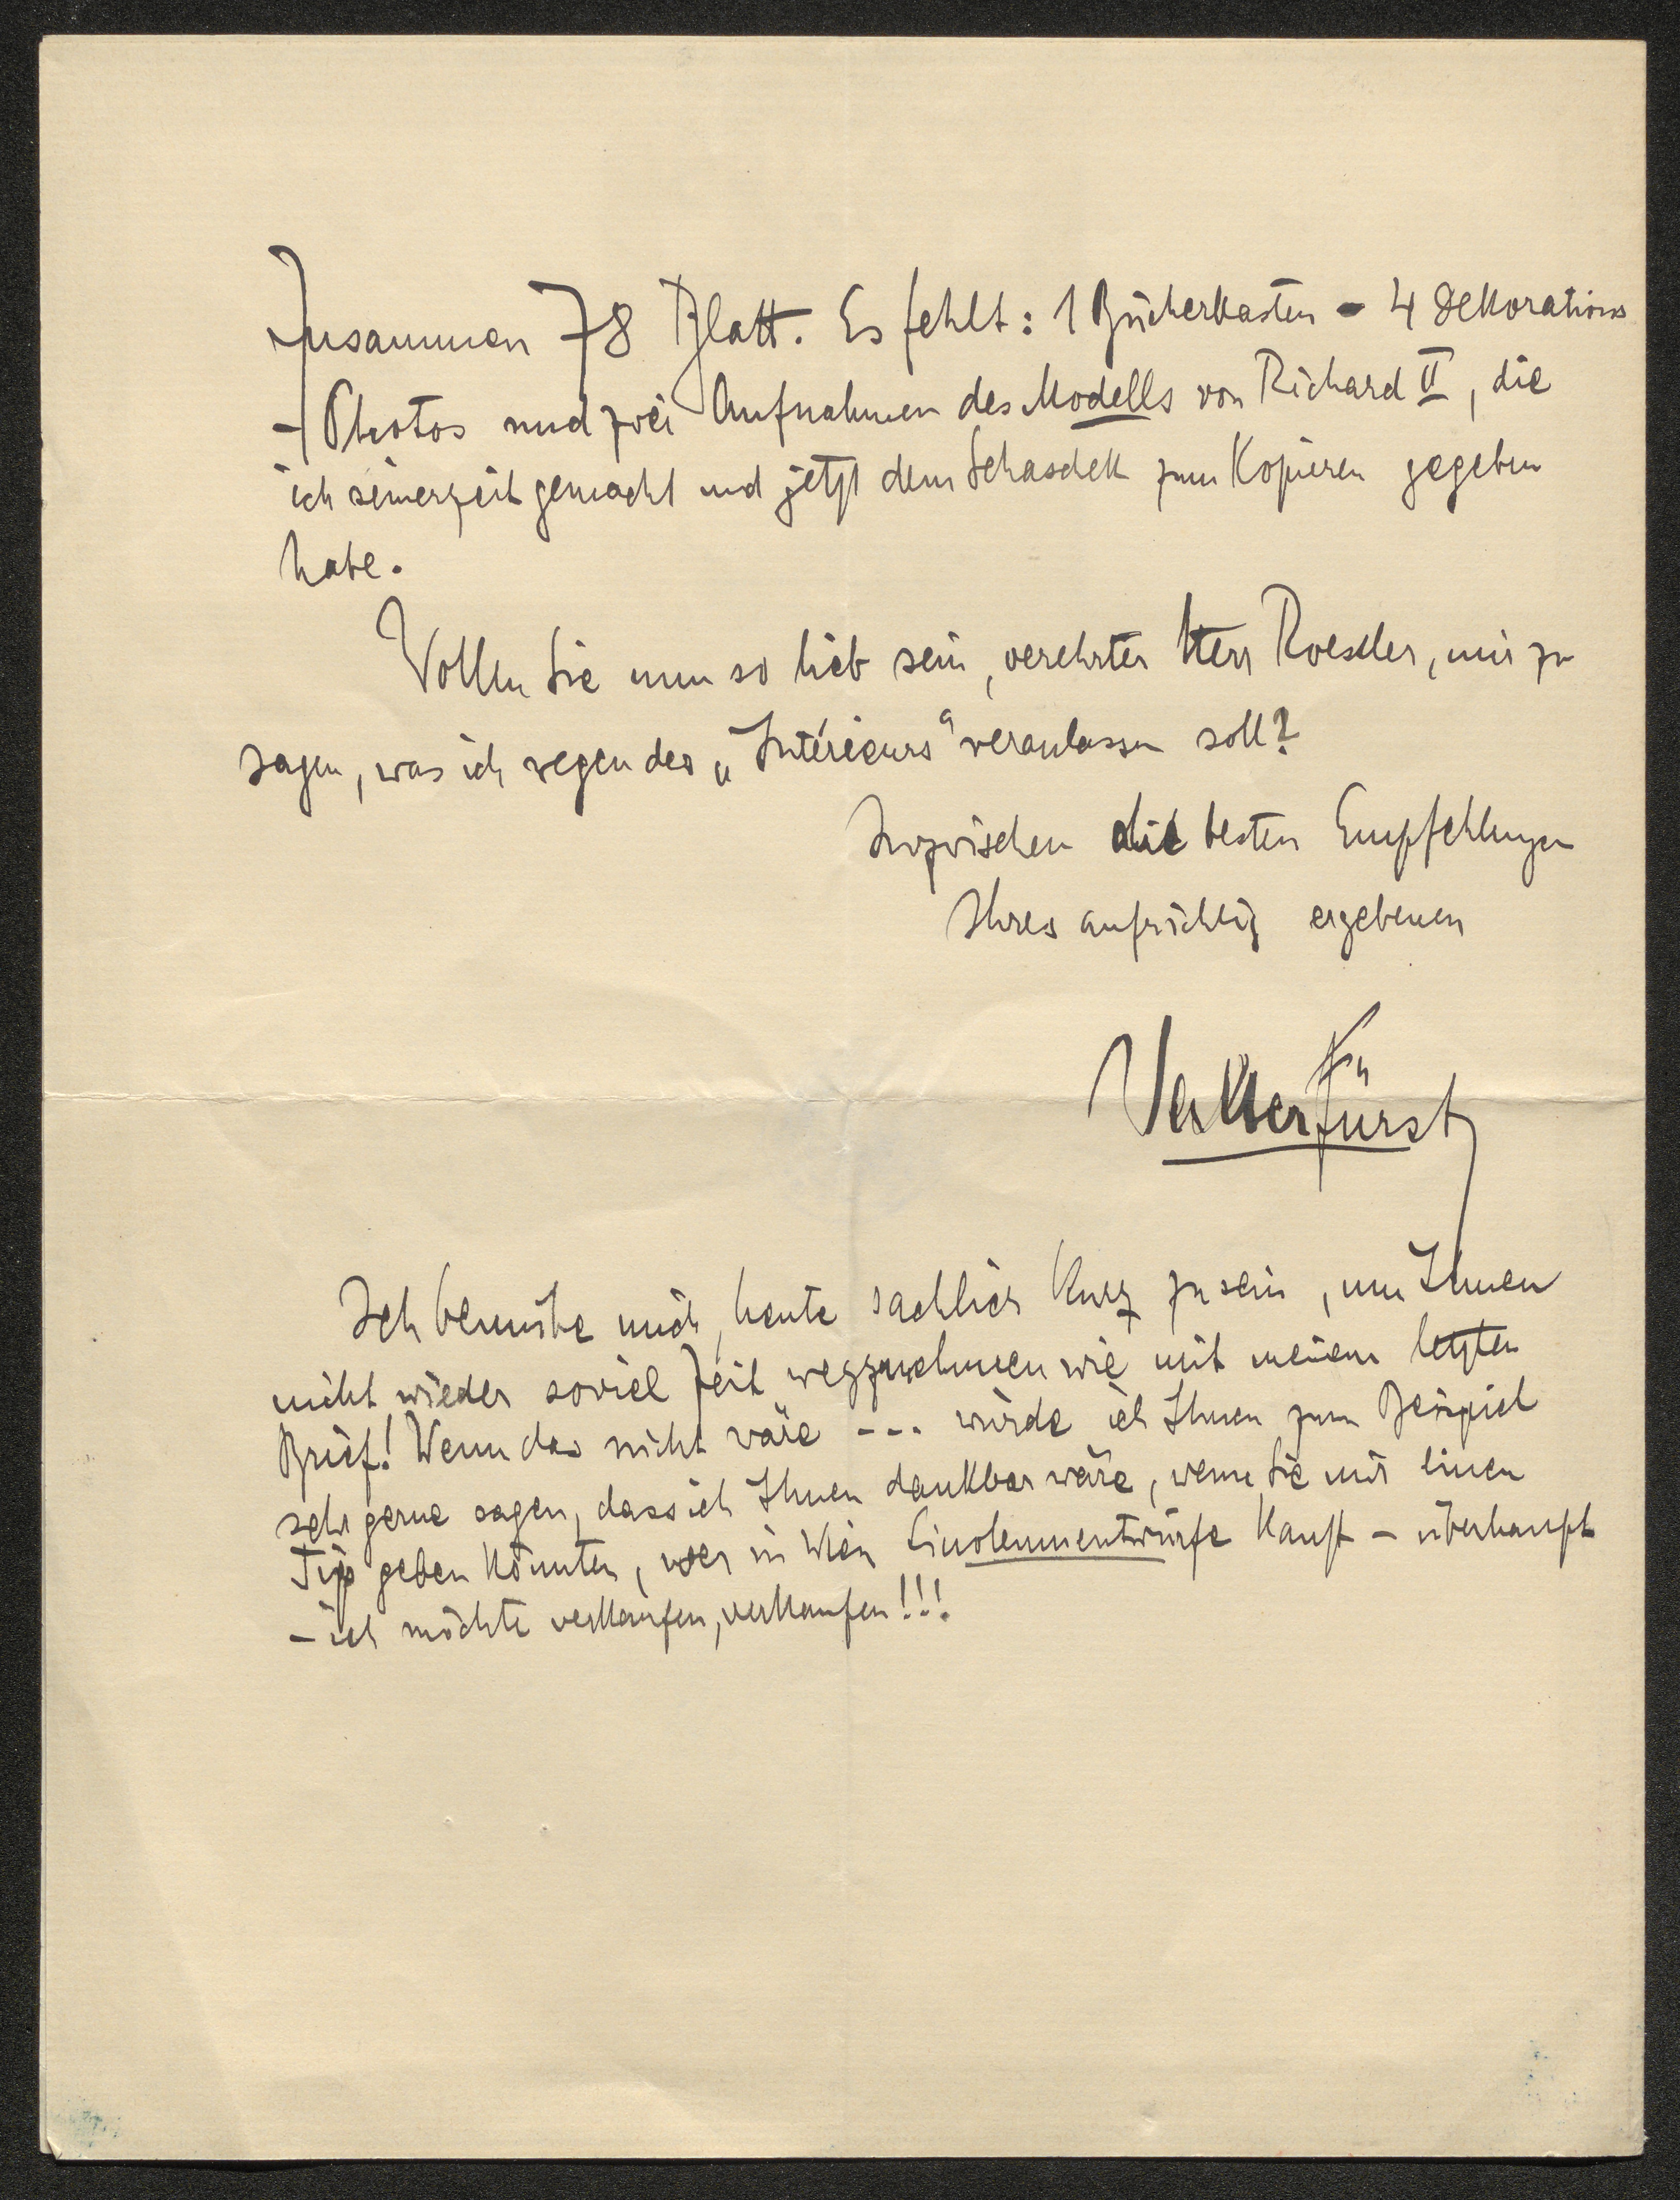 Zusammen 78 Blatt. Es fehlt: 1 Bücherkasten - 4 Dekorations
- Photos und zwei Aufnahmen des Modells von Richard II, die
ich seinerzeit gemacht und jetzt dem Schasdek zum Kopieren gegeben
habe.
Wollen Sie nun so lieb sein, verehrter Herr Roessler, mir zu
sagen, was ich wegen des „Intérieurs“ veranlassen soll?
Inzwischen die besten Empfehlungen
Ihres aufrichtig ergebenen
Walter Fürst
Ich bemühe mich, heute sachlich kurz zu sein, um Ihnen
nicht wieder soviel Zeit wegzunehmen wie mit meinem letzten
Brief! Wenn das nicht wäre --- würde ich Ihnen zum Beispiel
sehr gerne sagen, dass ich Ihnen dankbar wäre, wenn Sie mir einen
Tip geben könnten, wer in Wien Linoleumentwürfe kauft - überhaupt
- ich möchte verkaufen, verkaufen!!!